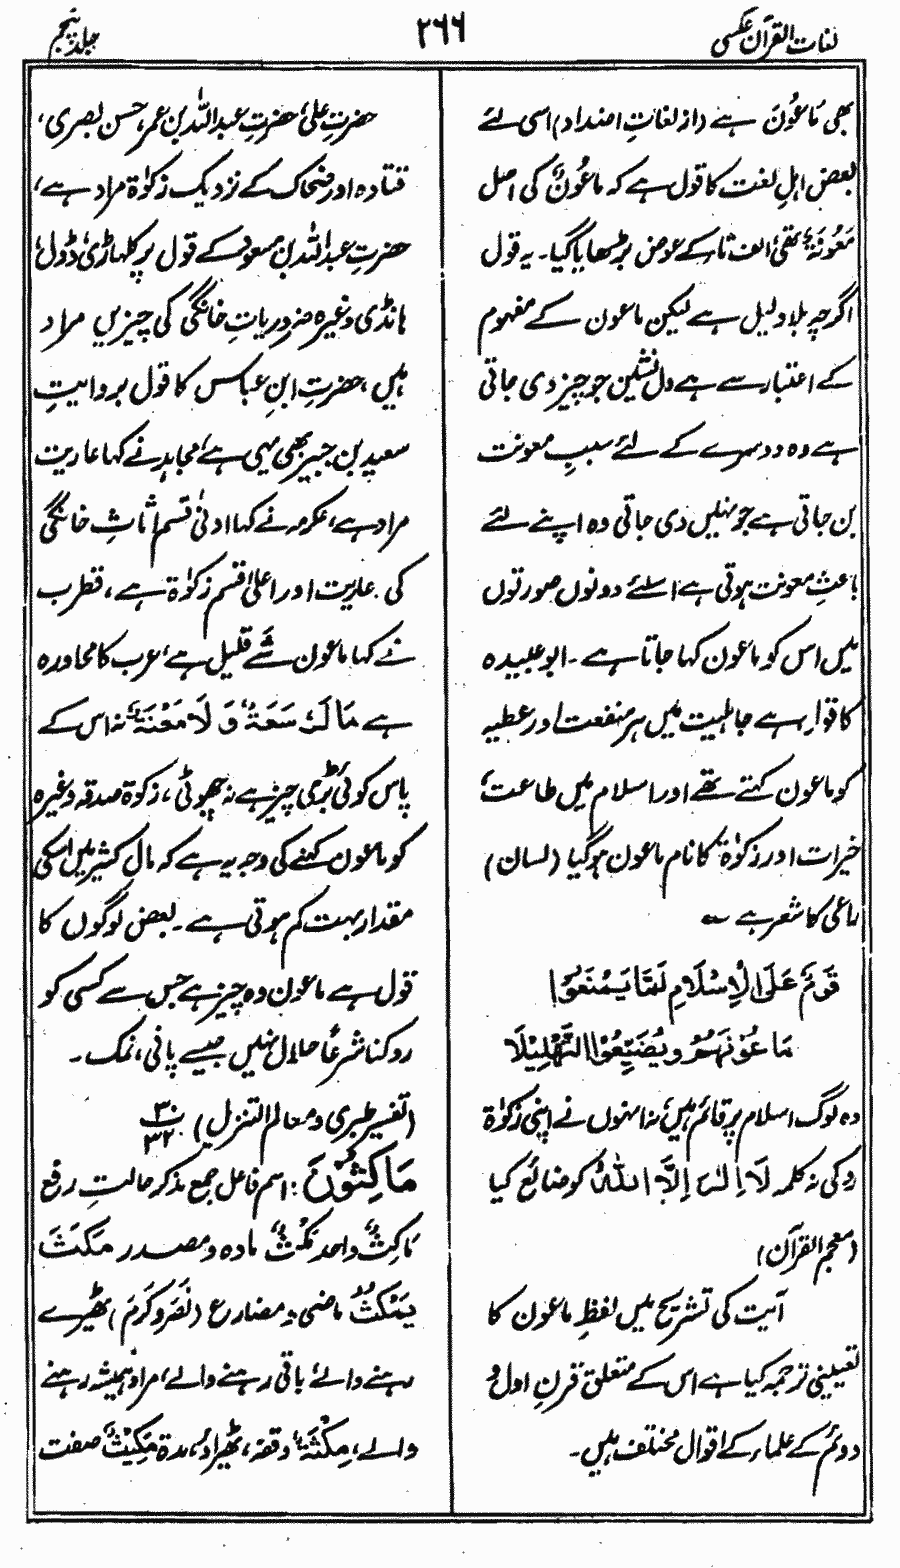 لغات القرآن عکسی
۲۶۶
جلد پنجم
بھی مَاعُوْنَ ہے (از لغاتِ اضداد) اسی لئے
بعض اہلِ لغت کا قول ہے کہ مَاعُوْنٌ کی اصل
مَعُوْنَۃٌ تھی الف تا کے عوض بڑھایا گیا۔ یہ قول
اگرچہ بلا دلیل ہے لیکن ماعون کے مفہوم
کے اعتبار سے ہے دل نشین جو چیز دی جاتی
ہے وہ دوسرے کے لئے سببِ معونت
بن جاتی ہے جو نہیں دی جاتی وہ اپنے لئے
باعثِ معونت ہوتی ہے اسلئے دونوں صورتوں
میں اس کو ماعون کہا جاتا ہے۔ ابو عبیدہ
کا قول ہے جاہلیت میں ہر منفعت اور عطیہ
کو ماعون کہتے تھے اور اسلام میں طاعت،
خیرات اور زکوٰۃ کا نام ماعون ہوگیا (لسان)
راعی کا شعر ہے ؎
قَوْمٌ عَلَی الْاِسْلَامِ لَمَّا یَمْنَعُوْا
مَاعُوْنَہُمْ وَیُضَیِّعُوا التَّہْلِیْلَا
وہ لوگ اسلام پر قائم ہیں، نہ انہوں نے اپنی زکوٰۃ
روکی نہ کلمہ لَا اِلٰہَ اِلَّا اللہُ کو ضائع کیا
(معجم القرآن)
آیت کی تشریح میں لفظِ ماعون کا
تعیینی ترجمہ کیا ہے اس کے متعلق قرنِ اول و
دوئم کے علماء کے اقوال مختلف ہیں۔
حضرتِ علی، حضرتِ عبداللہ بن عمر، حسن بصری،
قتادہ اور ضحاک کے نزدیک زکوٰۃ مراد ہے،
حضرتِ عبداللہ بن مسعود کے قول پر کلہاڑی، ڈول،
ہانڈی وغیرہ ضروریاتِ خانگی کی چیزیں مراد
ہیں، حضرتِ ابنِ عباس کا قول بروایتِ
سعید بن جبیر بھی یہی ہے، مجاہد نے کہا عاریت
مراد ہے، عکرمہ نے کہا ادنیٰ قسم اثاثِ خانگی
کی عاریت اور اعلیٰ قسم زکوٰۃ ہے، قطرب
نے کہا ماعون شَے قلیل ہے، عرب کا محاورہ
ہے مَا لَہٗ سَعَۃٌ وَ لَا مَعْنَۃٌ نہ اس کے
پاس کوئی بڑی چیز ہے نہ چھوٹی، زکوٰۃ صدقہ وغیرہ
کو ماعون کہنے کی وجہ یہ ہے کہ مال کثیر میں اسکی
مقدار بہت کم ہوتی ہے۔ بعض لوگوں کا
قول ہے ماعون وہ چیز ہے جس سے کسی کو
روکنا شرعًا حلال نہیں جیسے پانی، نمک۔
(تفسیر طبری و معالم التنزیل) ۳۰ ۳۲
مَاکِثُوْنَ : اسم فاعل جمع مذکر حالتِ رفع
مَاکِثٌ واحد مُکْثٌ مادہ و مصدر مَکَثَ
یَمْکُثُ ماضی و مضارع (نَصَرَ وکَرُمَ) ٹھہرے
رہنے والے، باقی رہنے والے، مراد ہمیشہ رہنے
والے، مِکْثَۃٌ وقفہ، ٹھہراؤ، مدۃ مَکِیْثٌ صفت